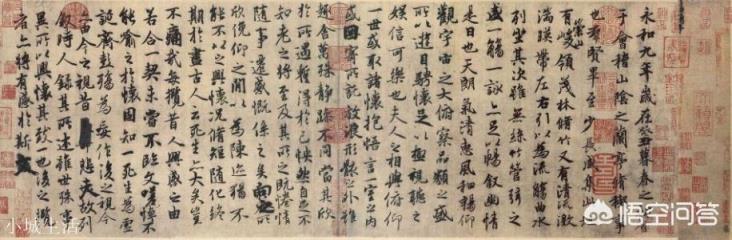 永和九年歲在癸丑暮春之初會
于會稽山陰之蘭亭脩稧事
也羣賢畢至少長咸集此地
有崇山峻領茂林脩竹又有清流激
湍暎帶左右引以為流觴曲水
列坐其次雖無絲竹管弦之
盛一觴一詠亦足以暢敘幽情
是日也天朗氣清惠風和暢仰
觀宇宙之大俯察品類之盛
所以遊目騁懷足以極視聽之
娛信可樂也夫人之相與俯仰
一世或取諸懷抱悟言一室之內
或因寄所託放浪形骸之外雖
趣舍萬殊靜躁不同當其欣
於所遇蹔得於己怏然自足不
知老之將至及其所之既惓情
隨事遷感慨係之矣向之所
欣俛仰之閒以為陳迹猶不
能不以之興懷況脩短隨化終
期於盡古人云死生亦大矣豈
不痛哉每攬昔人興感之由
若合一契未嘗不臨文嗟悼不
能喻之於懷固知一死生為虛
誕齊彭殤為妄作後之視今
亦由今之視昔悲夫故列
敘時人錄其所述雖世殊事
異所以興懷其致一也後之攬
者亦將有感於斯文
小城生活
悟空问答